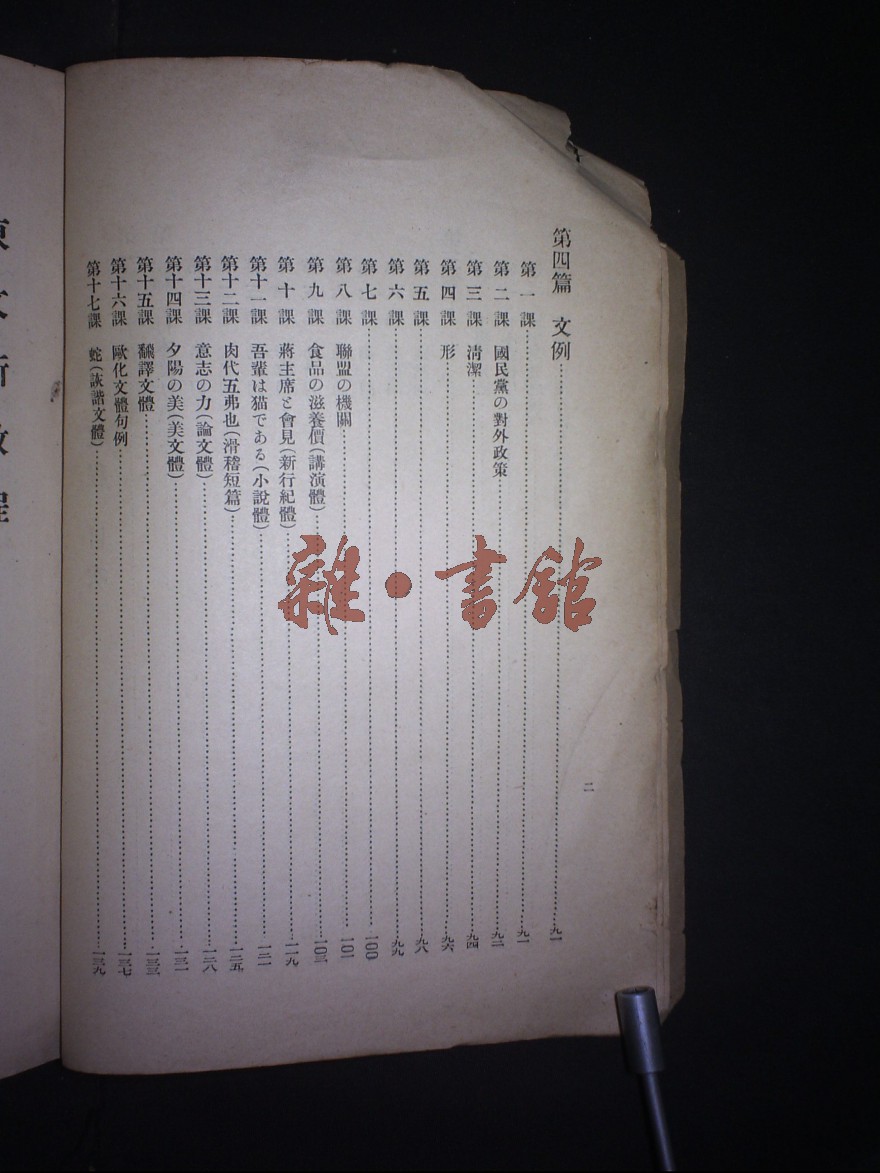 第四篇 文例……九一
第一課……九一
第二課 國民黨の對外政策……九二
第三課 淸潔……九四
第四課 形……九六
第五課……九八
第六課……九九
第七課……一〇〇
第八課 聯盟の機關……一〇一
第九課 食品の滋養價(講演體)……一〇三
第十課 蔣主席と會見(新行紀體)……一一九
第十一課 吾輩は猫である(小說體)……一二一
第十二課 肉代五弗也(滑稽短篇)……一二五
第十三課 意志の力(論文體)……一二八
第十四課 夕陽の美(美文體)……一三一
第十五課 飜譯文體……一三三
第十六課 歐化文體句例……一三七
第十七課 蛇(詼諧文體)……一三九
二
程
雜·書館